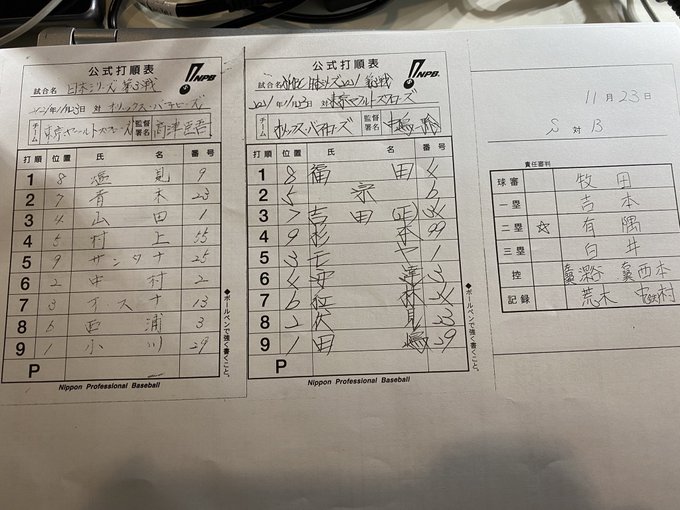 公式打順表
NPB
試合名 日本シリーズ 第3戦
対 オリックス・バファローズ
チーム 東京ヤクルトスワローズ 監督署名 高津臣吾
打順 位置 氏 名 番号
1 8 塩見 9
2 7 青木 23
3 4 山田 1
4 5 村上 55
5 9 サンタナ 25
6 2 中村 2
7 3 オスナ 13
8 6 西浦 3
9 1 小川 29
P
Nippon Professional Baseball
●ボールペンで強く書くこと。
公式打順表
NPB
試合名 SMBC日本シリーズ2021 第3戦
対 東京ヤクルトスワローズ
チーム オリックス・バファローズ 監督署名
打順 位置 氏 名 番号
1 8 福田 4
2 5 宗 6
3 7 吉田(正) 34
4 9 杉本 99
5 3 モヤ 1
6 4 安達 3
7 6 紅林 24
8 2 伏見 23
9 1 田嶋 29
P
Nippon Professional Baseball
●ボールペンで強く書くこと。
11月23日
S 対 B
責任審判
球審 牧田
一塁 吉本
二塁 ☆ 有隅
三塁 白井
控 左翼 深谷 右翼 西本
記録 荒木 中村